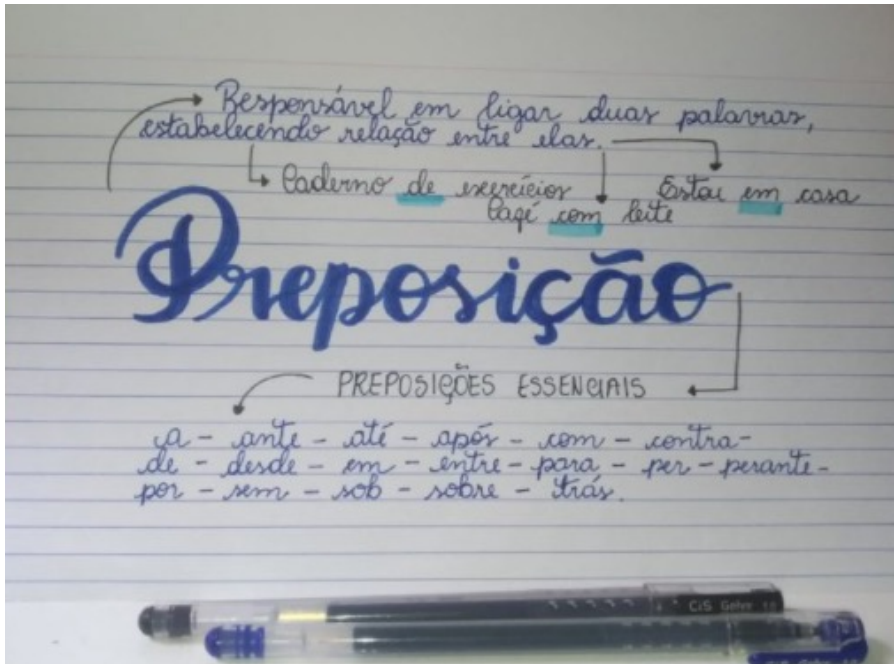 Responsável em ligar duas palavras,
estabelecendo relação entre elas.
Caderno de exercícios
Estou em casa
Café com leite
Preposição
PREPOSIÇÕES ESSENCIAIS
a - ante - até - após - com - contra -
de - desde - em - entre - para - per - perante -
por - sem - sob - sobre - trás.
CiS Gelyx 1.0